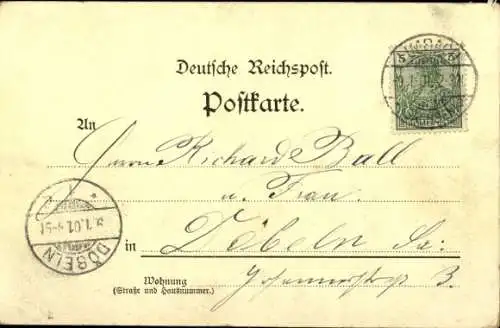 Deutsche Reichspost.
Postkarte.
An
Herrn Richard Ball
u. Frau.
in Döbeln Sa:
Wohnung
(Straße und Hausnummer.)
3.
5 5
DÖBELN